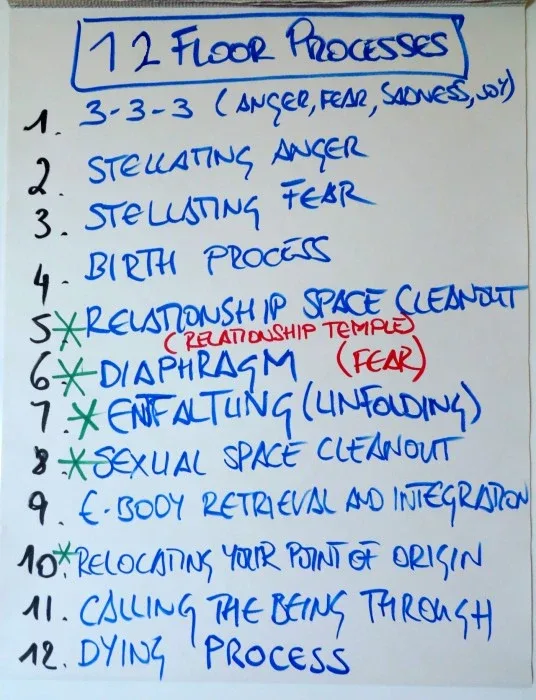 12 FLOOR PROCESSES
1. 3-3-3 (ANGER, FEAR, SADNESS, JOY)
2. STELLATING ANGER
3. STELLATING FEAR
4. BIRTH PROCESS
5* RELATIONSHIP SPACE CLEANOUT
(RELATIONSHIP TEMPLE)
6* DIAPHRAGM (FEAR)
7.* ENTFALTUNG (UNFOLDING)
8* SEXUAL SPACE CLEANOUT
9. E-BODY RETRIEVAL AND INTEGRATION
10.* RELOCATING YOUR POINT OF ORIGIN
11. CALLING THE BEING THROUGH
12. DYING PROCESS